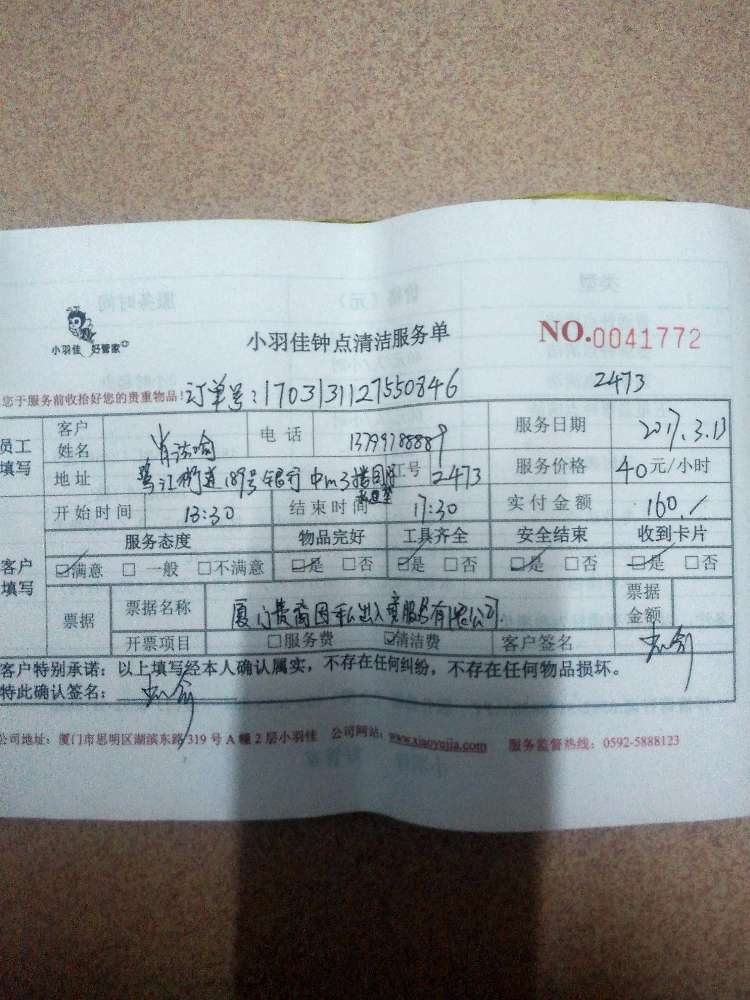 小羽佳 好管家
小羽佳钟点清洁服务单 NO.0041772
您于服务前收拾好您的贵重物品! 订单号:1703131127550846 2473
员工填写 客户姓名 电话 服务日期 2017.3.13
地址 鹭江街道189号银行中 工号 2473 服务价格 40元/小时
开始时间 13:30 结束时间 17:30 实付金额 160./
服务态度 物品完好 工具齐全 安全结束 收到卡片
客户填写 ☑满意 □一般 □不满意 ☑是 □否 ☑是 □否 ☑是 □否 ☑是 □否
票据 票据名称 厦门 出入境服务有限公司 票据金额
开票项目 □服务费 ☑清洁费 客户签名
客户特别承诺:以上填写经本人确认属实,不存在任何纠纷,不存在任何物品损坏。
特此确认签名:
公司地址:厦门市思明区湖滨东路319号A幢2层小羽佳 公司网站:www.xiaoyujia.com 服务监督热线:0592-5888123